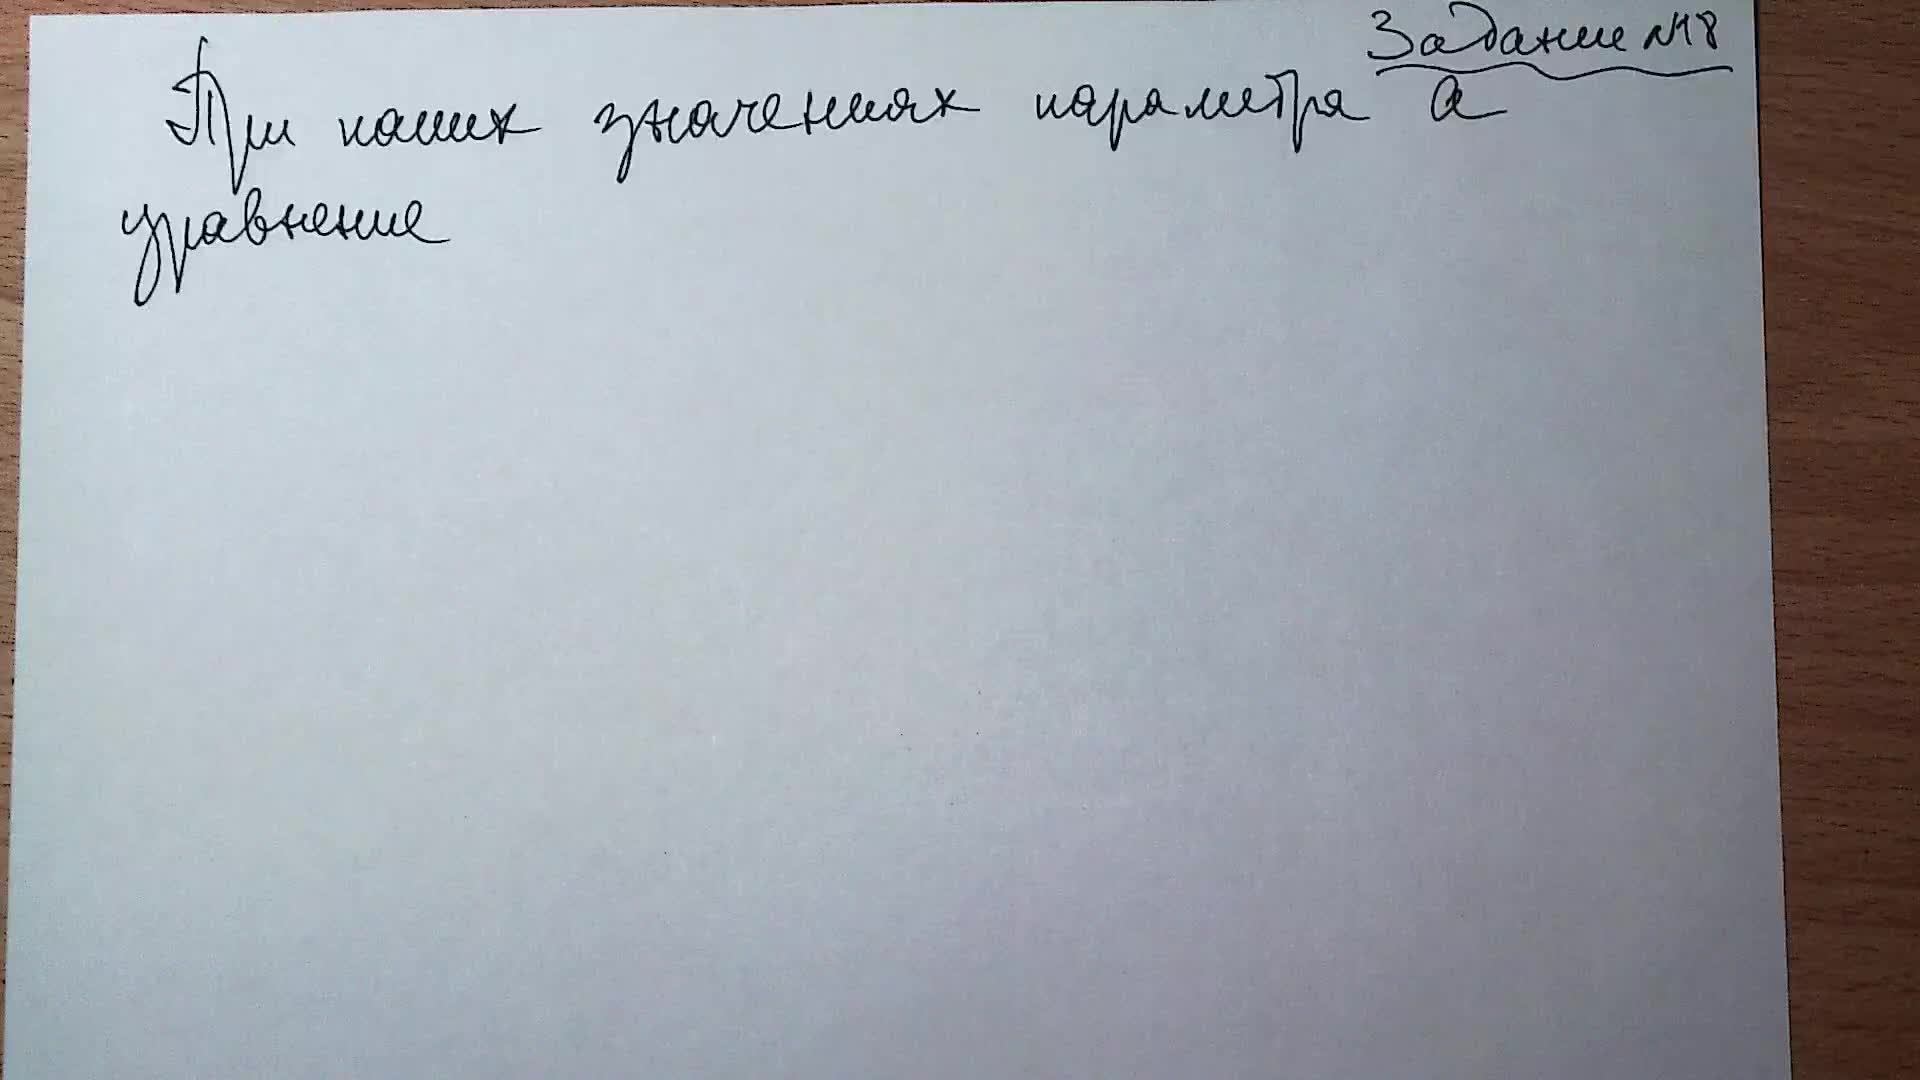 Задание №18
При каких значениях параметра а
уравнение